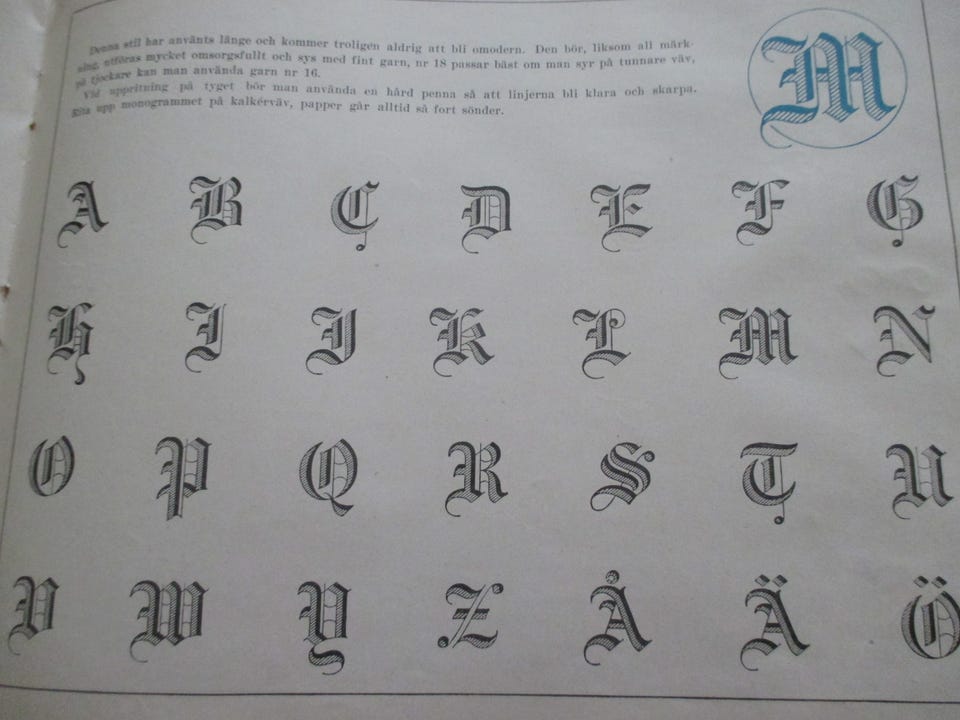 Denna stil har använts länge och kommer troligen aldrig att bli omodern. Den bör, liksom all märk-
ning, utföras mycket omsorgsfullt och sys med fint garn, nr 18 passar bäst om man syr på tunnare väv,
på tjockare kan man använda garn nr 16.
Vid uppritning på tyget bör man använda en hård penna så att linjerna bli klara och skarpa.
Rita upp monogrammet på kalkérväv, papper går alltid så fort sönder.
M
A B C D E F G
H I J K L M N
O P Q R S T U
V W Y Z Å Ä Ö